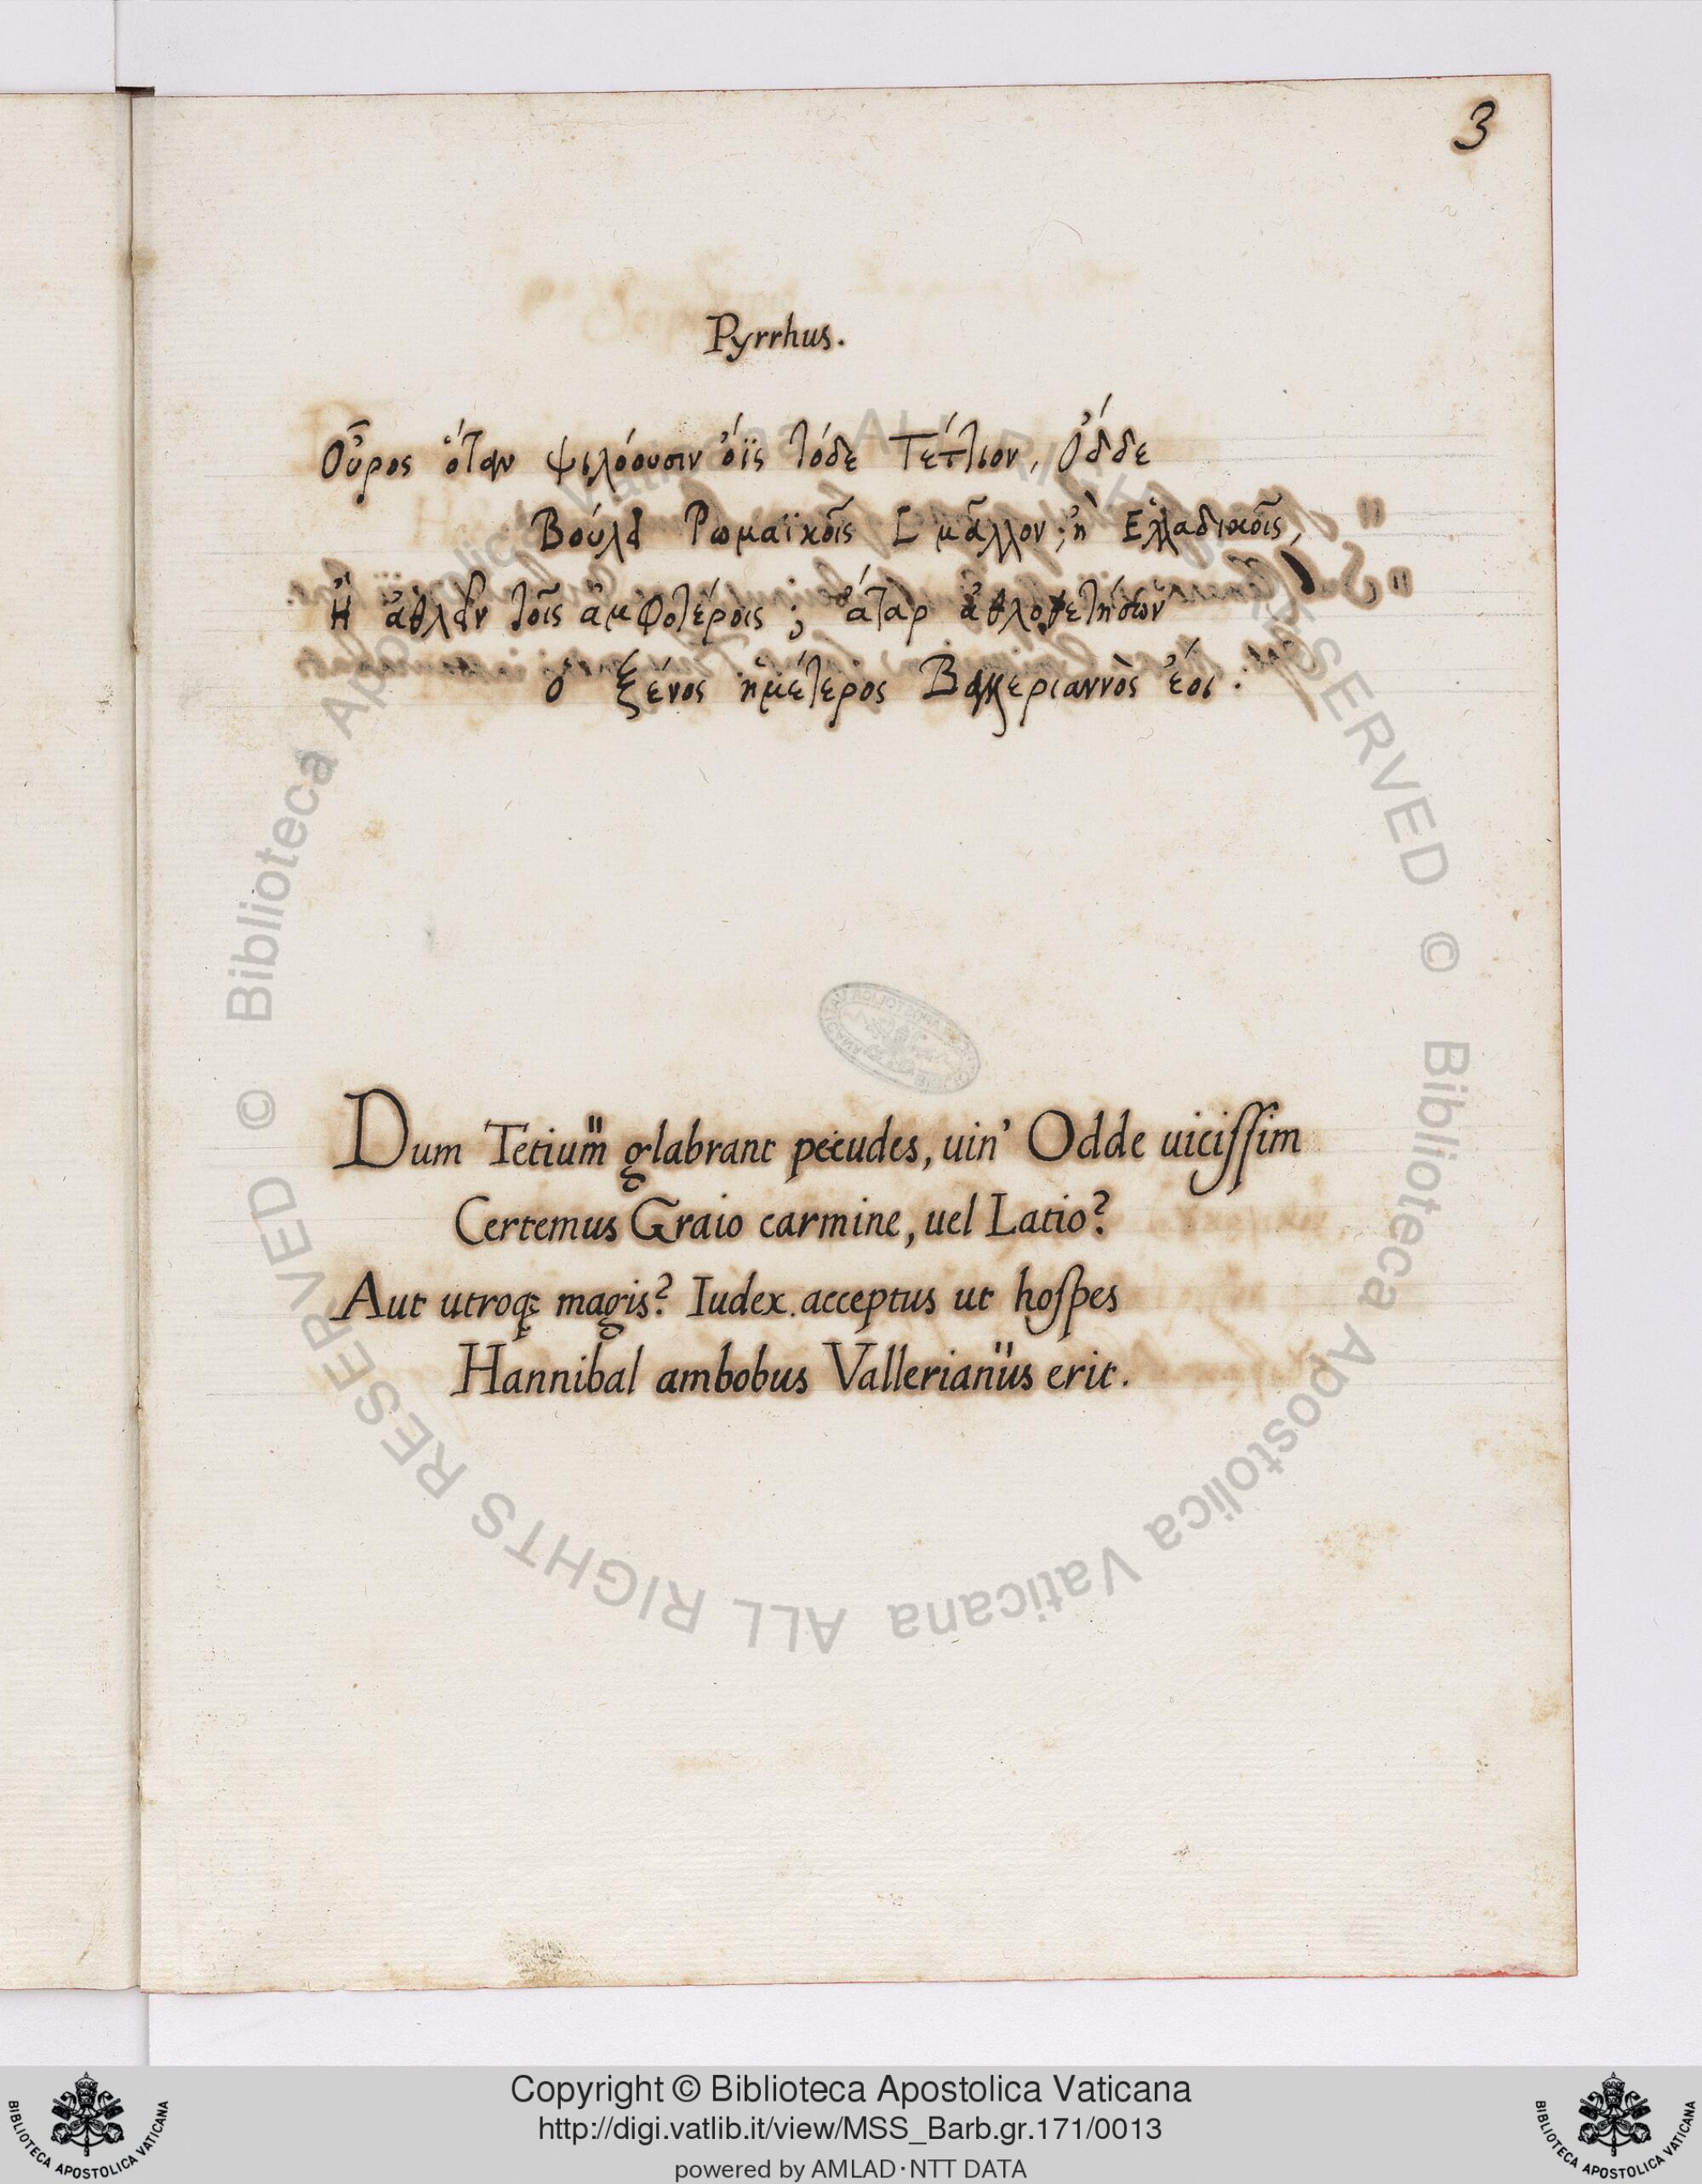 3
Pyrrhus.
Οὖρος ὅταν ψιλόουσιν ὄϊς τόδε Τέττιον, Ὄδδε
Βούλει Ῥωμαϊκοῖς μᾶλλον; ἢ Ἑλλαδικοῖς,
Ἢ ἀθλεῖν τοῖς ἀμφοτέροις; ἀτὰρ
ὁ ξένος ἡμέτερος ἔοι.
Dum Tetium glabrant pecudes, uin' Odde uicissim
Certemus Graio carmine, uel Latio?
Aut utroq; magis? Iudex acceptus ut hospes
Hannibal ambobus Vallerianus erit.
© Biblioteca Apostolica Vaticana ALL RIGHTS RESERVED © Biblioteca Apostolica Vaticana ALL RIGHTS RESERVED
Copyright © Biblioteca Apostolica Vaticana
http://digi.vatlib.it/view/MSS_Barb.gr.171/0013
powered by AMLAD·NTT DATA
BIBLIOTECA APOSTOLICA VATICANA
BIBLIOTECA APOSTOLICA VATICANA